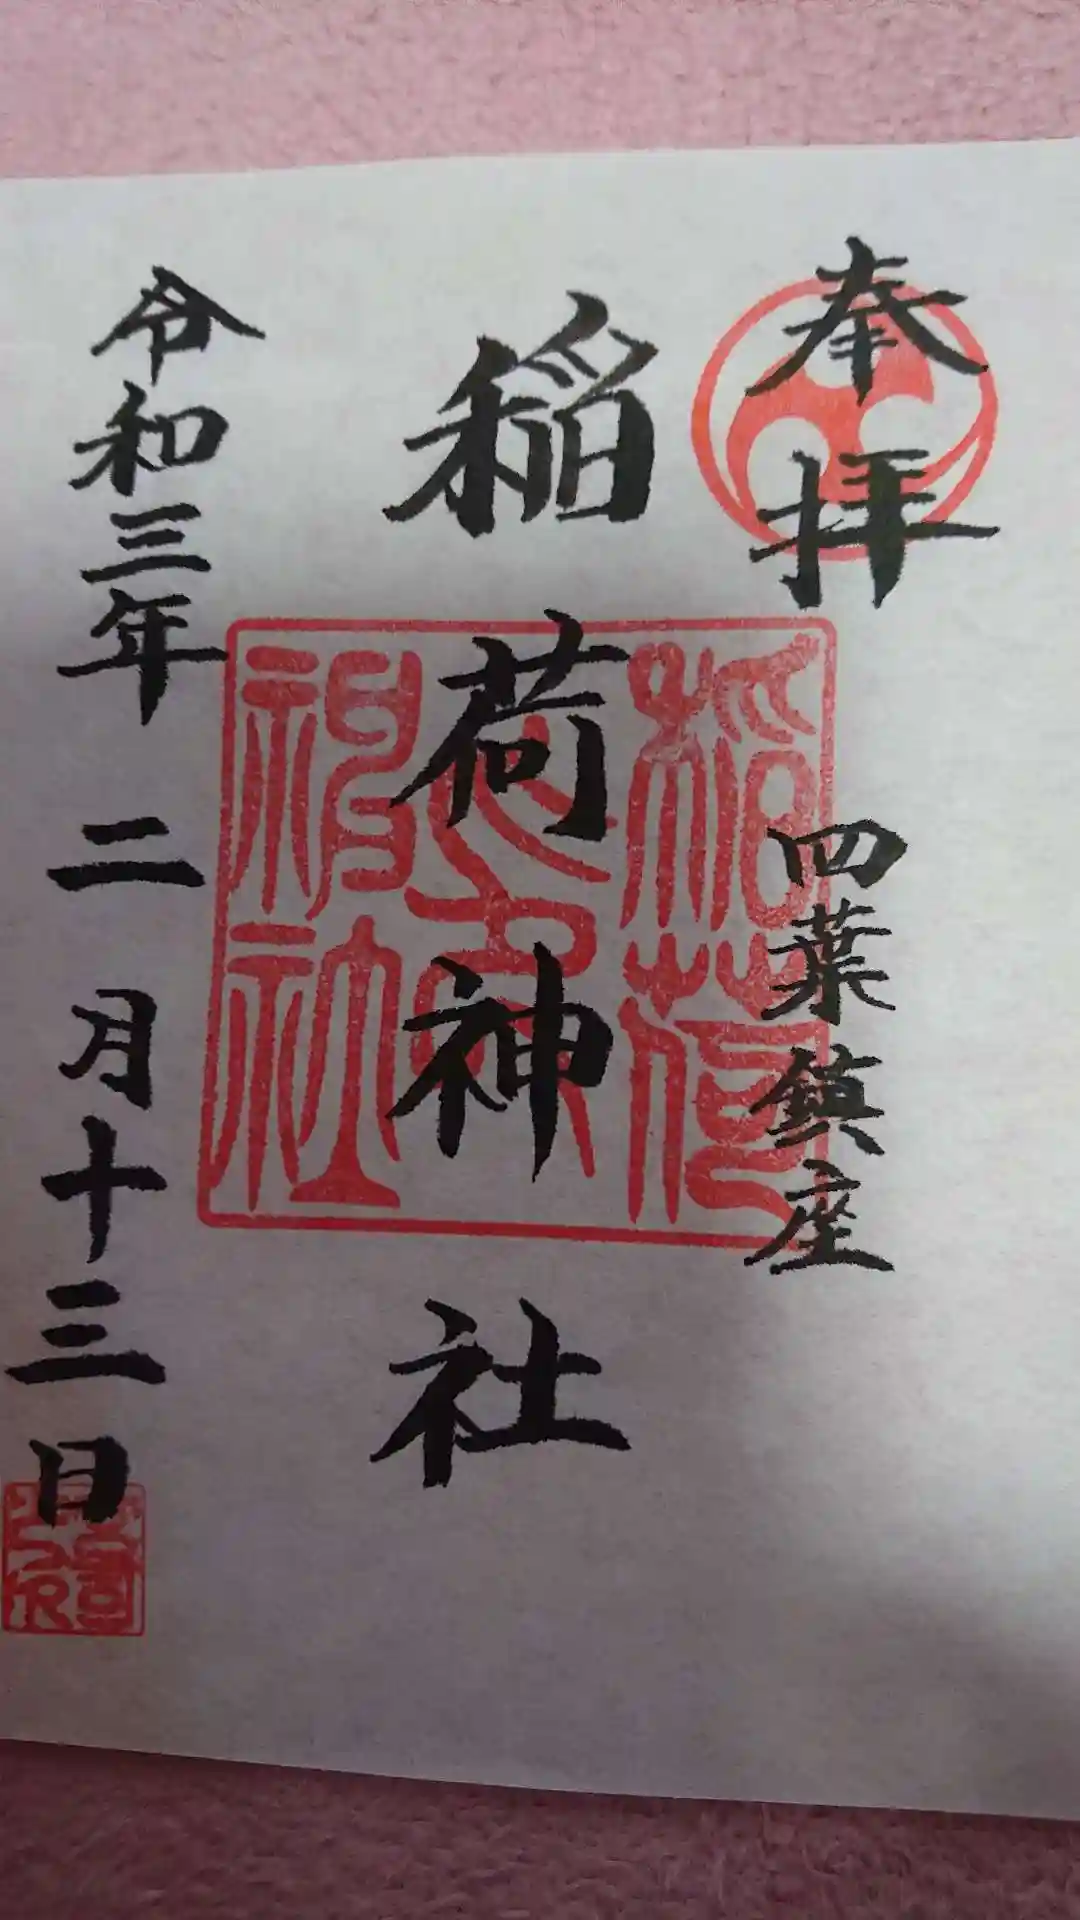 奉拝
四葉鎮座
稲荷神社
稲荷神社之印
令和三年二月十三日